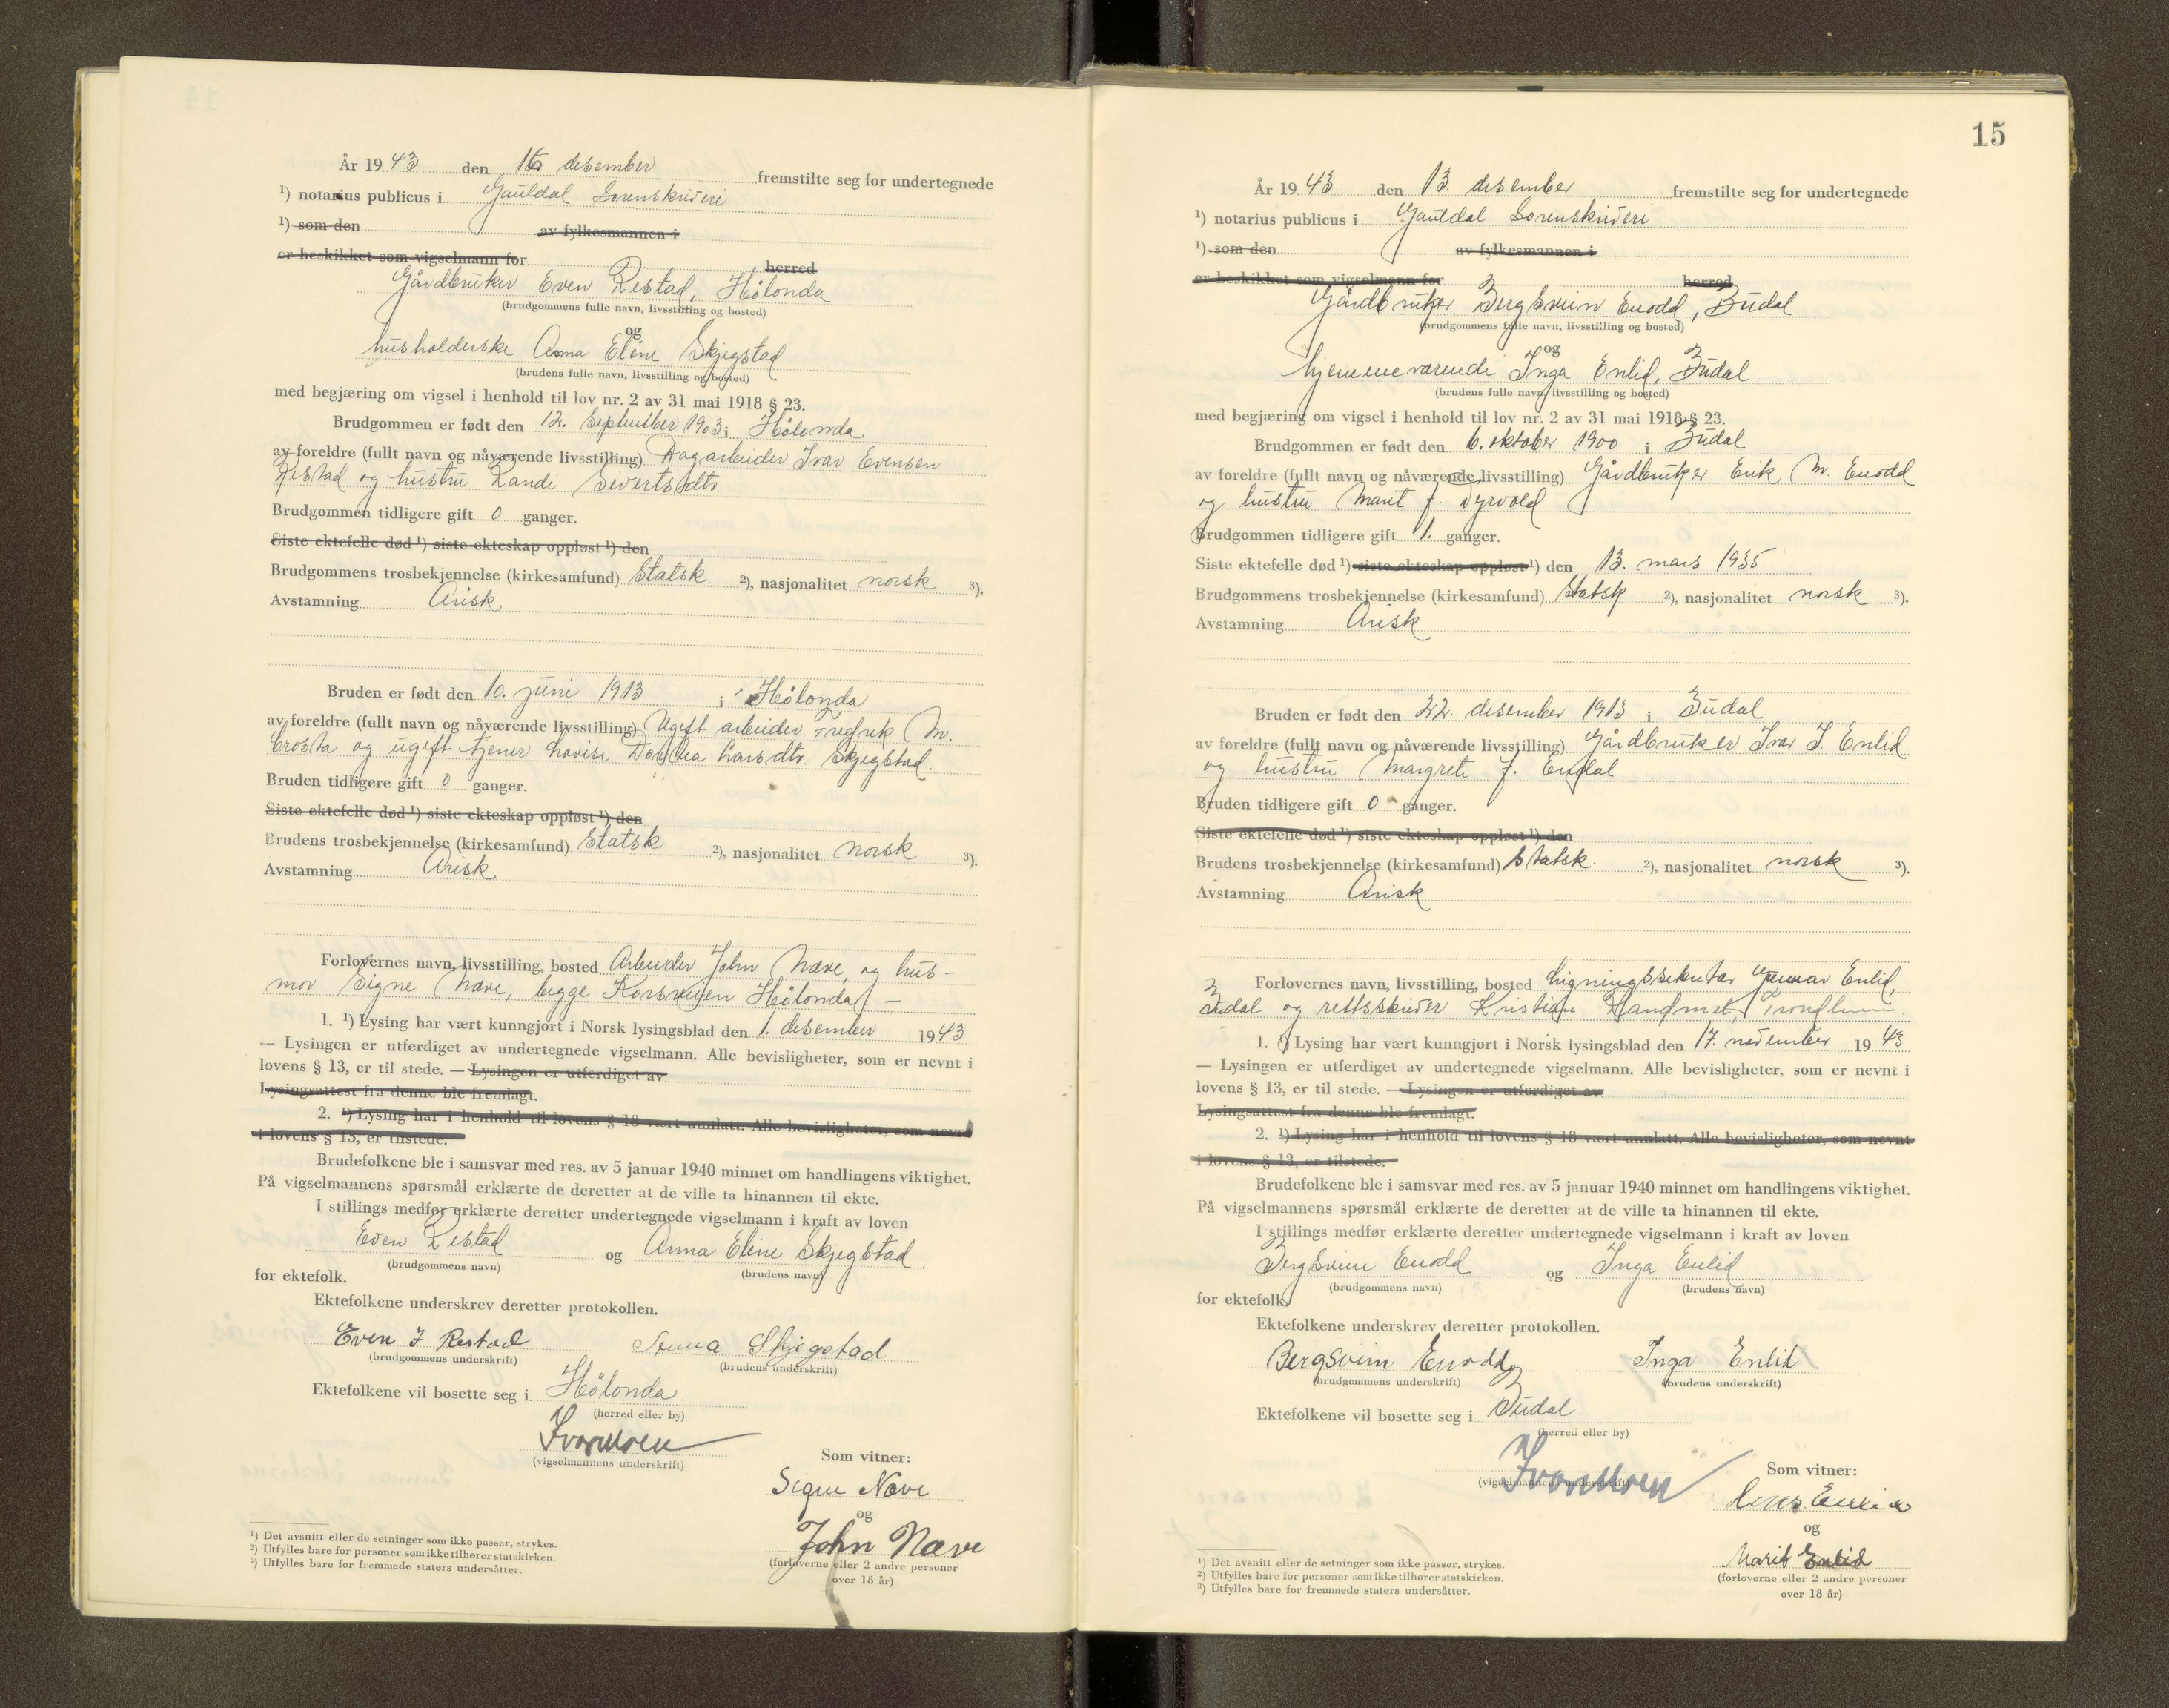 År 1943 den desember fremstilte seg for undertegnede
1) notarius publicus i Gauldal Sorenskriveri
1) som den av fylkesmannen i
er beskikket som vigselmann for herred
Gårdbruker Even Restad, Hølonda
(brudgommens fulle navn, livsstilling og bosted)
og
husholderske Anna Eline Skjegstad
(brudens fulle navn, livsstilling og bosted)
med begjæring om vigsel i henhold til lov nr. 2 av 31 mai 1918 § 23.
Brudgommen er født den 12. September 1903 i Hølonda
av foreldre (fullt navn og nåværende livsstilling) Dagarbeider Ivar Evensen
Restad og hustru Randi Sivertsdtr.
Brudgommen tidligere gift 0 ganger.
Siste ektefelle død 1) siste ekteskap oppløst 1) den
Brudgommens trosbekjennelse (kirkesamfund) Statsk 2), nasjonalitet norsk 3).
Avstamning Arisk
Bruden er født den 10. juni 1913 i Hølonda
av foreldre (fullt navn og nåværende livsstilling) Ugift arbeider Fredrik M.
Krosta og ugift tjener Lovise Dorthea Larsdtr. Skjegstad.
Bruden tidligere gift 0 ganger.
Siste ektefelle død 1) siste ekteskap oppløst 1) den
Brudens trosbekjennelse (kirkesamfund) Statsk. 2), nasjonalitet norsk 3).
Avstamning Arisk
Forlovernes navn, livsstilling, bosted Arbeider John Næve, og hus-
mor Signe Næve, begge Korsveien Hølonda -
1. 1) Lysing har vært kunngjort i Norsk lysingsblad den 1. desember 1943
— Lysingen er utferdiget av undertegnede vigselmann. Alle bevisligheter, som er nevnt i
lovens § 13, er til stede. — Lysingen er utferdiget av
Lysingsattest fra denne ble fremlagt.
2. 1) Lysing har i henhold til lovens § 18 vært unnlatt. Alle bevisligheter, som nevnt
i lovens § 13, er tilstede.
Brudefolkene ble i samsvar med res. av 5 januar 1940 minnet om handlingens viktighet.
På vigselmannens spørsmål erklærte de deretter at de ville ta hinannen til ekte.
I stillings medfør erklærte deretter undertegnede vigselmann i kraft av loven
Even Restad og Anna Eline Skjegstad
(brudgommens navn) (brudens navn)
for ektefolk.
Ektefolkene underskrev deretter protokollen.
Even I Restad Anna Skjegstad
(brudgommens underskrift) (brudens underskrift)
Ektefolkene vil bosette seg i Hølonda.
(herred eller by)
Ivar Moen
(vigselmannens underskrift)
Som vitner:
Signe Næve
og
John Næve
(forloverne eller 2 andre personer
over 18 år)
1) Det avsnitt eller de setninger som ikke passer, strykes.
2) Utfylles bare for personer som ikke tilhører statskirken.
3) Utfylles bare for fremmede staters undersåtter.
15
År 1943 den 13. desember fremstilte seg for undertegnede
1) notarius publicus i Gauldal Sorenskriveri
1) som den av fylkesmannen i
er beskikket som vigselmann for herred
Gårdbruker Bergsvein Enodd, Budal
(brudgommens fulle navn, livsstilling og bosted)
og
hjemmeværende Inga Enlid, Budal
(brudens fulle navn, livsstilling og bosted)
med begjæring om vigsel i henhold til lov nr. 2 av 31 mai 1918 § 23.
Brudgommen er født den 6. oktober 1900 i Budal
av foreldre (fullt navn og nåværende livsstilling) Gårdbruker Erik M. Enodd
og hustru Marit f. Dyrvold
Brudgommen tidligere gift 1. ganger.
Siste ektefelle død 1) siste ekteskap oppløst 1) den 13. mars 1935
Brudgommens trosbekjennelse (kirkesamfund) Statsk 2), nasjonalitet norsk 3).
Avstamning Arisk
Bruden er født den 22. desember 1913 i Budal
av foreldre (fullt navn og nåværende livsstilling) Gårdbruker Ivar I. Enlid
og hustru Margrete f. Endal
Bruden tidligere gift 0 ganger.
Siste ektefelle død 1) siste ekteskap oppløst 1) den
Brudens trosbekjennelse (kirkesamfund) Statsk. 2), nasjonalitet norsk 3).
Avstamning Arisk
Forlovernes navn, livsstilling, bosted Ligningssekretær Gunnar Enlid,
Budal og rettsskriver Kristian Trondheim.
1. 1) Lysing har vært kunngjort i Norsk lysingsblad den 17. november 1943
— Lysingen er utferdiget av undertegnede vigselmann. Alle bevisligheter, som er nevnt i
lovens § 13, er til stede. — Lysingen er utferdiget av
Lysingsattest fra denne ble fremlagt.
2. 1) Lysing har i henhold til lovens § 18 vært unnlatt. Alle bevisligheter, som nevnt
i lovens § 13, er tilstede.
Brudefolkene ble i samsvar med res. av 5 januar 1940 minnet om handlingens viktighet.
På vigselmannens spørsmål erklærte de deretter at de ville ta hinannen til ekte.
I stillings medfør erklærte deretter undertegnede vigselmann i kraft av loven
Bergsvein Enodd og Inga Enlid
(brudgommens navn) (brudens navn)
for ektefolk.
Ektefolkene underskrev deretter protokollen.
Bergsvein Enodd Inga Enlid
(brudgommens underskrift) (brudens underskrift)
Ektefolkene vil bosette seg i Budal
(herred eller by)
Ivar Moen
(vigselmannens underskrift)
Som vitner:
og
Marit Enlid
(forloverne eller 2 andre personer
over 18 år)
1) Det avsnitt eller de setninger som ikke passer, strykes.
2) Utfylles bare for personer som ikke tilhører statskirken.
3) Utfylles bare for fremmede staters undersåtter.